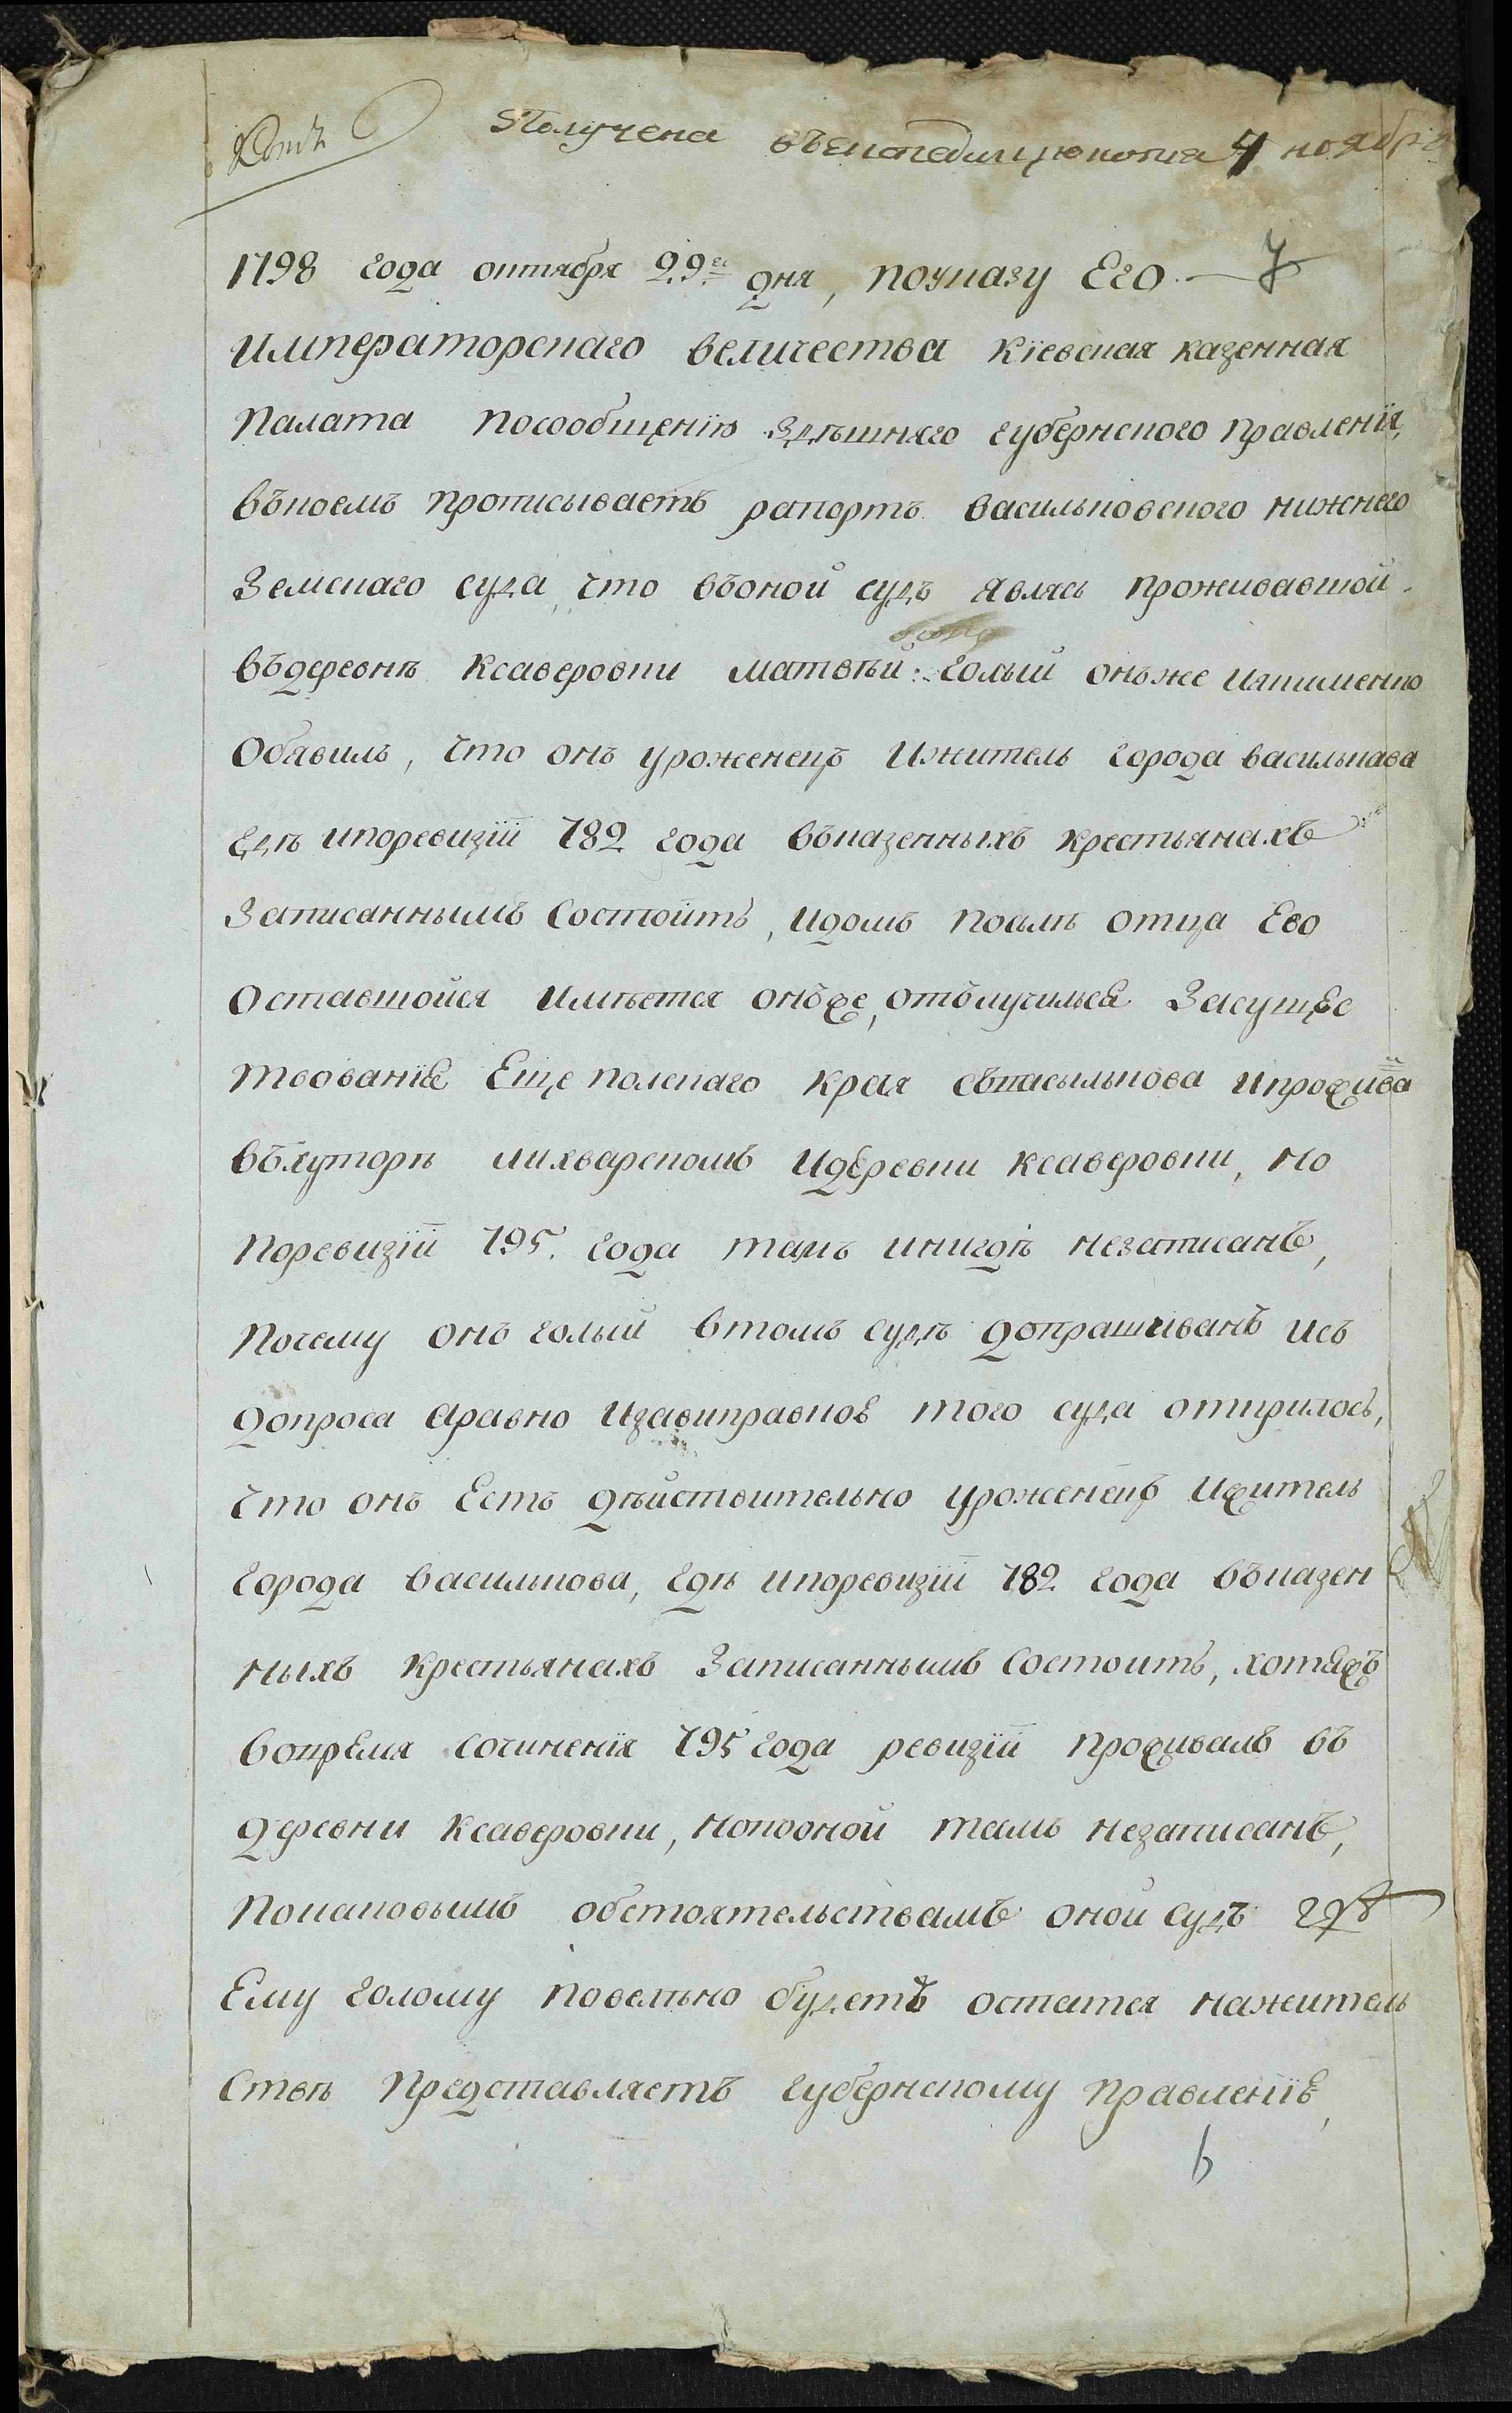 Получена въекспедицию копиа 4 ноября
1798 года октября 29го дня, поуказу Его
императорскаго величества кіевская казенная
Палата посообщенію здѣшняго губернского правленія,
въкоемъ прописываетъ рапортъ васильковского нижнего
Земскаго суда, что въоной судъ являсь проживавшой
въдеревнѣ ксаверовки матвѣй голый онъже
Обявилъ, что онъ уроженецъ ижитель города василькава
гдѣ ипоревизіи 782 года въказенныхъ крестьянахъ
Записаннымъ состоитъ, идомъ послѣ отца Ево
Оставшойся имѣется онже, отълучилься засущес
твованіе Еще полскаго края съвасылькова ипрожива
въхуторѣ лихварскомъ идеревни ксаверовки, но
Поревизіи 795. года тамъ инигдѣ незаписанъ,
Почему онъ голый втомъ судѣ допрашиванъ исъ
допроса аравно изавиправкою того суда открилось,
что онъ Есть дѣйствительно уроженецъ ижитель
города василькова, гдѣ ипоревизіи 782 года въказен
ныхъ крестьянахъ записаннымъ состоитъ, хотяжъ
вовремя сочиненія 795 года ревизіи проживалъ въ
деревни ксаверовки, нопооной тамъ незаписанъ,
Покаковымъ обстоятельствамъ оной судъ гдѣ
Ему голому повелѣно будетъ остатся нажитель
Ствѣ представляетъ губернскому правленіе,